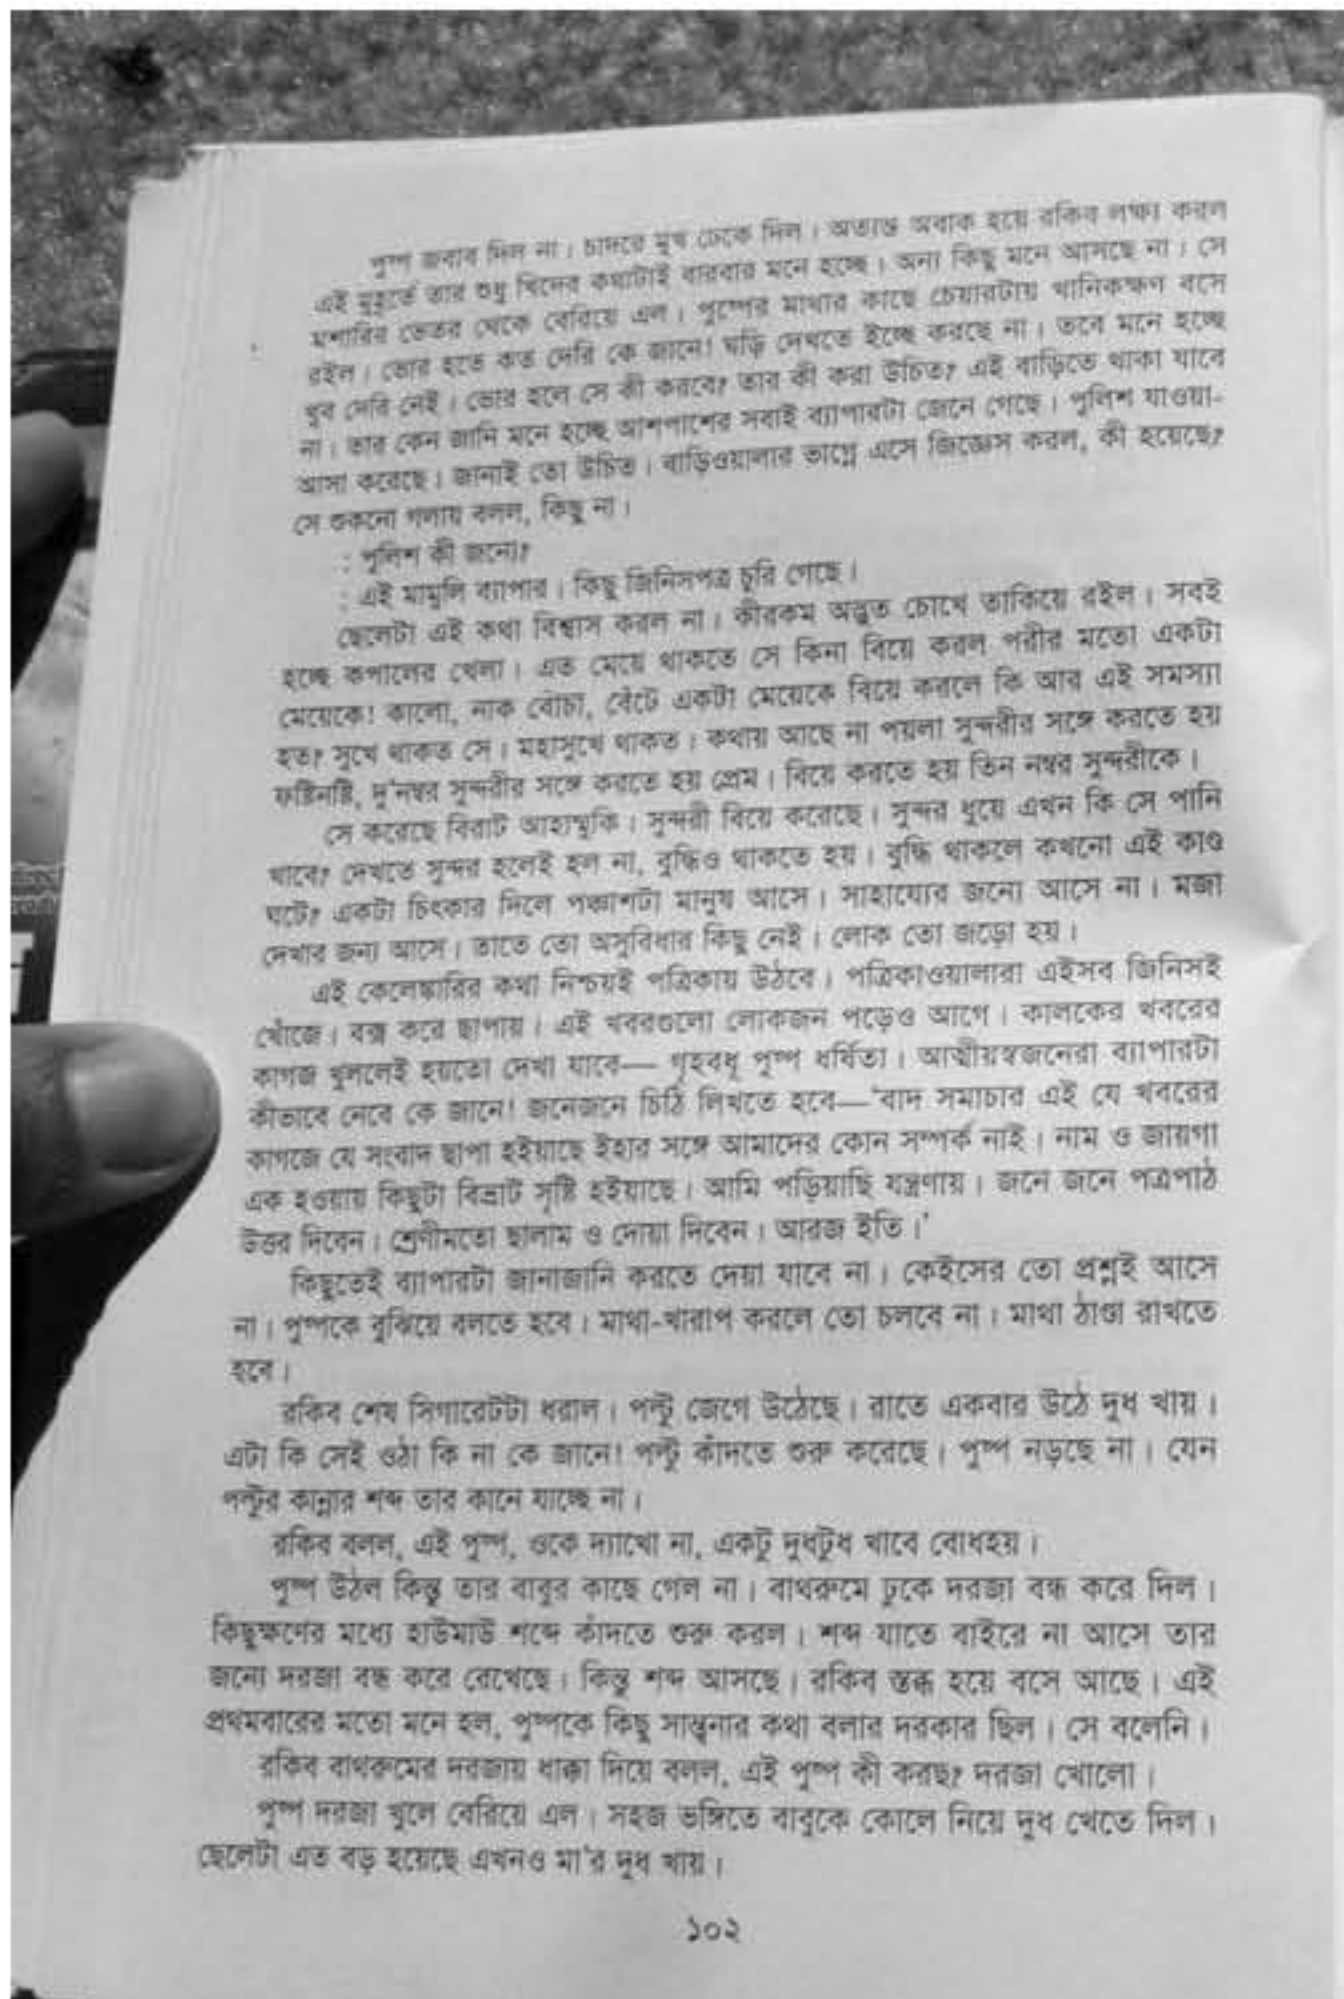 পুষ্প জবাব দিল না। চাদরে মুখ ঢেকে দিল। অত্যন্ত অবাক হয়ে রকিব লক্ষ্য করল
এই মুহূর্তে তার শুধু খিদের কথাটাই বারবার মনে হচ্ছে। অন্য কিছু মনে আসছে না। সে
মশারির ভেতর থেকে বেরিয়ে এল। পুষ্পের মাথার কাছে চেয়ারটায় খানিকক্ষণ বসে
রইল। ভোর হতে কত দেরি কে জানে! ঘড়ি দেখতে ইচ্ছে করছে না। তবে মনে হচ্ছে
খুব দেরি নেই। ভোর হলে সে কী করবে? তার কী করা উচিত? এই বাড়িতে থাকা যাবে
না। তার কেন জানি মনে হচ্ছে আশপাশের সবাই ব্যাপারটা জেনে গেছে। পুলিশ যাওয়া-
আসা করেছে। জানাই তো উচিত। বাড়িওয়ালার ভাগ্নে এসে জিজ্ঞেস করল, কী হয়েছে?
সে শুকনো গলায় বলল, কিছু না।
: পুলিশ কী জন্যে?
: এই মামুলি ব্যাপার। কিছু জিনিসপত্র চুরি গেছে।
ছেলেটা এই কথা বিশ্বাস করল না। কীরকম অদ্ভুত চোখে তাকিয়ে রইল। সবই
হচ্ছে কপালের খেলা। এত মেয়ে থাকতে সে কিনা বিয়ে করল পরীর মতো একটা
মেয়েকে! কালো, নাক বোঁচা, বেঁটে একটা মেয়েকে বিয়ে করলে কি আর এই সমস্যা
হত? সুখে থাকত সে। মহাসুখে থাকত। কথায় আছে না পয়লা সুন্দরীর সঙ্গে করতে হয়
ফষ্টিনষ্টি, দু'নম্বর সুন্দরীর সঙ্গে করতে হয় প্রেম। বিয়ে করতে হয় তিন নম্বর সুন্দরীকে।
সে করেছে বিরাট আহাম্মুকি। সুন্দরী বিয়ে করেছে। সুন্দর ধুয়ে এখন কি সে পানি
খাবে? দেখতে সুন্দর হলেই হল না, বুদ্ধিও থাকতে হয়। বুদ্ধি থাকলে কখনো এই কাণ্ড
ঘটে? একটা চিৎকার দিলে পঞ্চাশটা মানুষ আসে। সাহায্যের জন্যে আসে না। মজা
দেখার জন্য আসে। তাতে তো অসুবিধার কিছু নেই। লোক তো জড়ো হয়।
এই কেলেঙ্কারির কথা নিশ্চয়ই পত্রিকায় উঠবে। পত্রিকাওয়ালারা এইসব জিনিসই
খোঁজে। বক্স করে ছাপায়। এই খবরগুলো লোকজন পড়েও আগে। কালকের খবরের
কাগজ খুললেই হয়তো দেখা যাবে— গৃহবধূ পুষ্প ধর্ষিতা। আত্মীয়স্বজনেরা ব্যাপারটা
কীভাবে নেবে কে জানে! জনেজনে চিঠি লিখতে হবে—'বাদ সমাচার এই যে খবরের
কাগজে যে সংবাদ ছাপা হইয়াছে ইহার সঙ্গে আমাদের কোন সম্পর্ক নাই। নাম ও জায়গা
এক হওয়ায় কিছুটা বিভ্রাট সৃষ্টি হইয়াছে। আমি পড়িয়াছি যন্ত্রণায়। জনে জনে পত্রপাঠ
উত্তর দিবেন। শ্রেণীমতো ছালাম ও দোয়া দিবেন। আরজ ইতি।'
কিছুতেই ব্যাপারটা জানাজানি করতে দেয়া যাবে না। কেইসের তো প্রশ্নই আসে
না। পুষ্পকে বুঝিয়ে বলতে হবে। মাথা-খারাপ করলে তো চলবে না। মাথা ঠাণ্ডা রাখতে
হবে।
রকিব শেষ সিগারেটটা ধরাল। পল্টু জেগে উঠেছে। রাতে একবার উঠে দুধ খায়।
এটা কি সেই ওঠা কি না কে জানে! পল্টু কাঁদতে শুরু করেছে। পুষ্প নড়ছে না। যেন
পল্টুর কান্নার শব্দ তার কানে যাচ্ছে না।
রকিব বলল, এই পুষ্প, ওকে দ্যাখো না, একটু দুধটুধ খাবে বোধহয়।
পুষ্প উঠল কিন্তু তার বাবুর কাছে গেল না। বাথরুমে ঢুকে দরজা বন্ধ করে দিল।
কিছুক্ষণের মধ্যে হাউমাউ শব্দে কাঁদতে শুরু করল। শব্দ যাতে বাইরে না আসে তার
জন্যে দরজা বন্ধ করে রেখেছে। কিন্তু শব্দ আসছে। রকিব স্তব্ধ হয়ে বসে আছে। এই
প্রথমবারের মতো মনে হল, পুষ্পকে কিছু সান্ত্বনার কথা বলার দরকার ছিল। সে বলেনি।
রকিব বাথরুমের দরজায় ধাক্কা দিয়ে বলল, এই পুষ্প কী করছ? দরজা খোলো।
পুষ্প দরজা খুলে বেরিয়ে এল। সহজ ভঙ্গিতে বাবুকে কোলে নিয়ে দুধ খেতে দিল।
ছেলেটা এত বড় হয়েছে এখনও মা'র দুধ খায়।
১০২